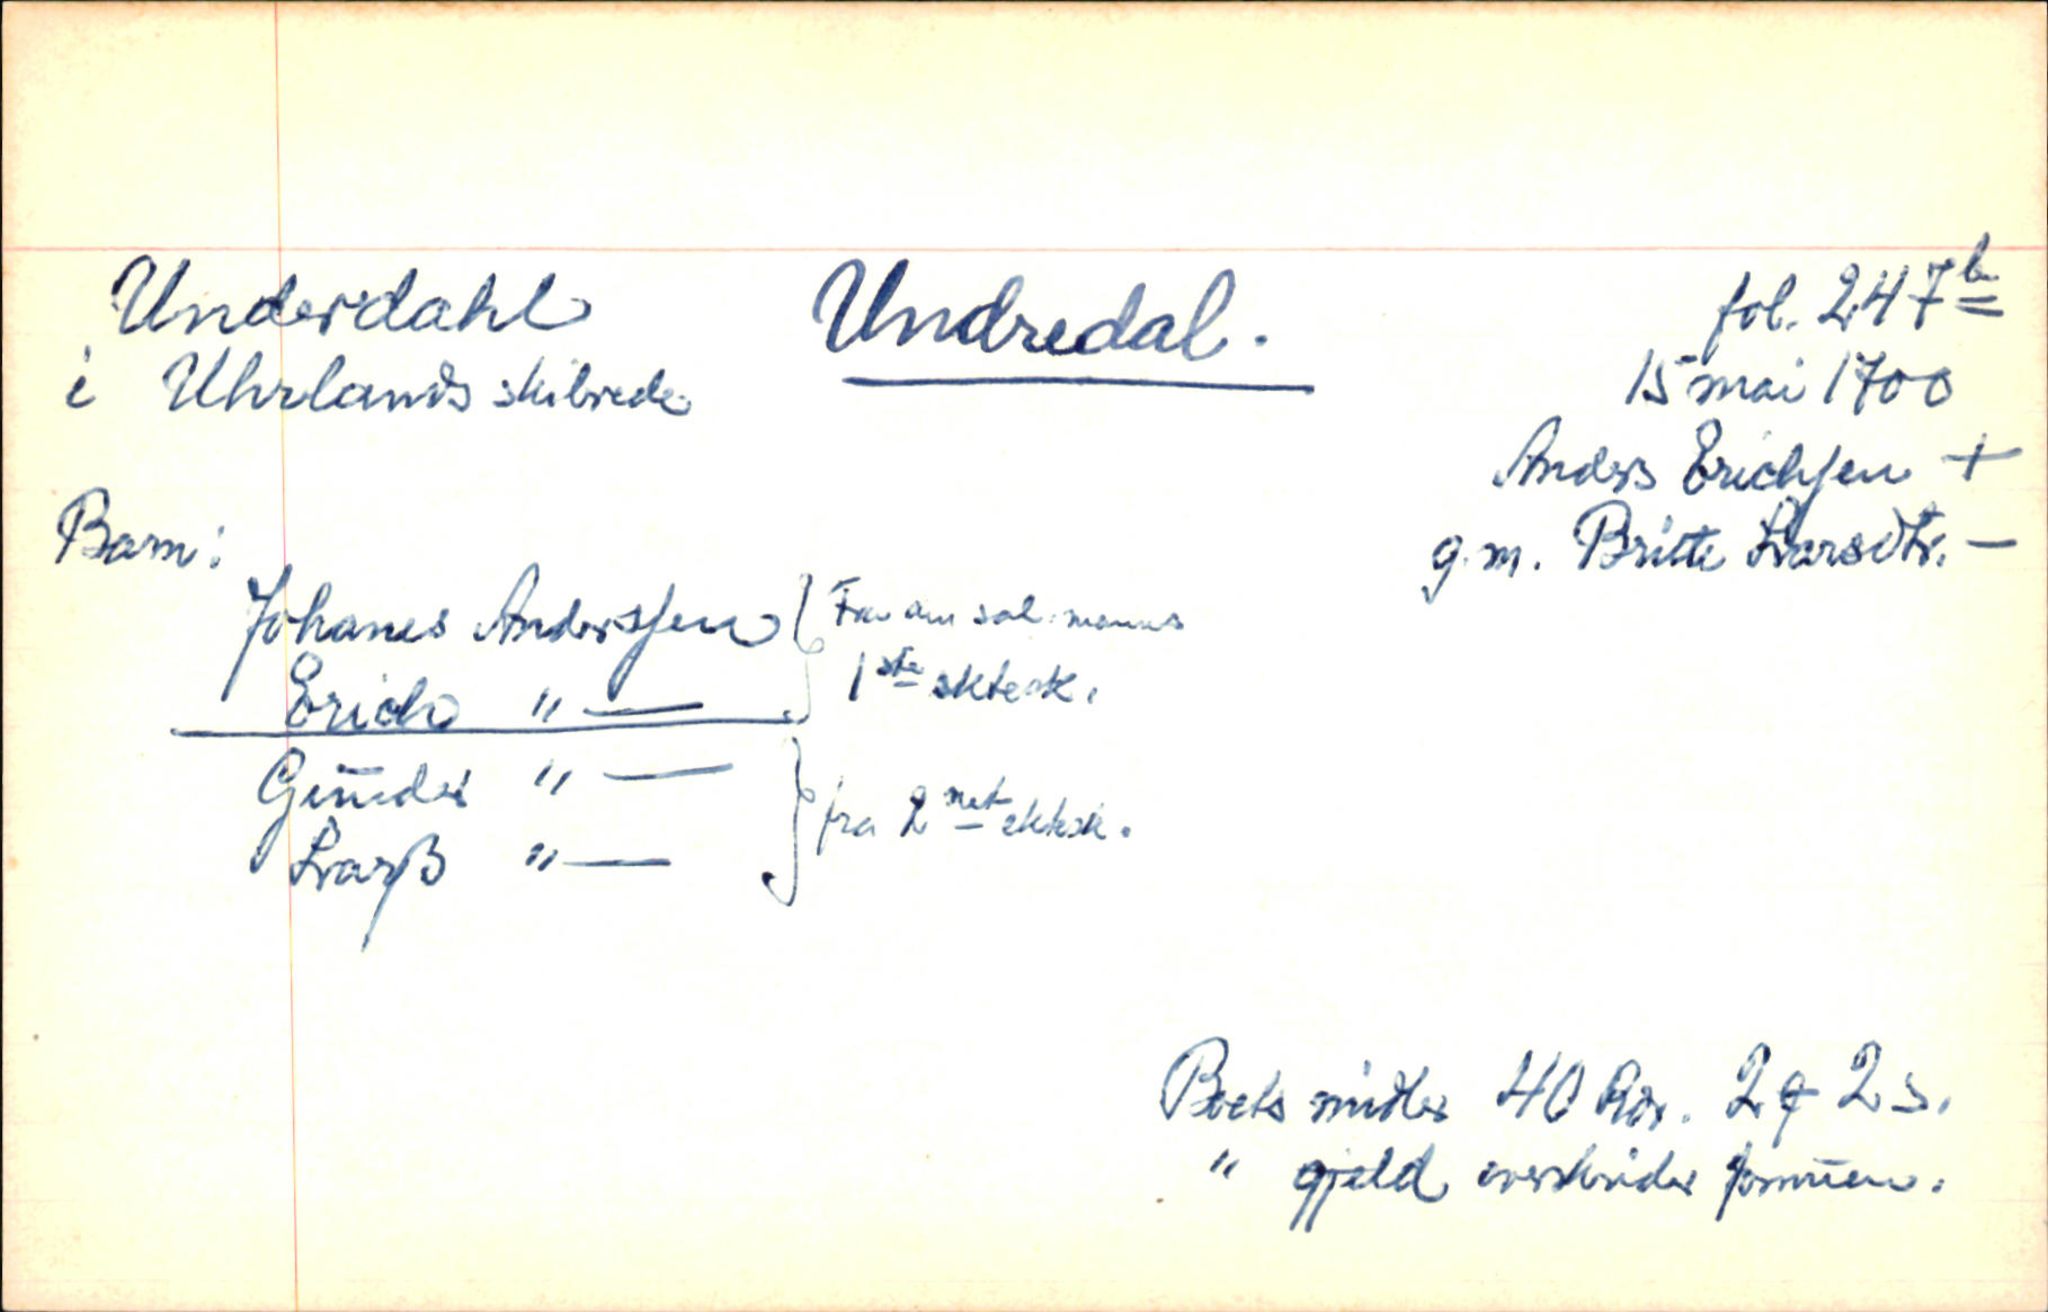 Underdahl
i Uhrlands skibrede
Undredal.
fol. 247 b
15 mai 1700
Anders Erichsen +
g.m. Britte Larsdtr. —
Barn:
Johanes Anderssen
Erich " —
sal. manns
1ste ektesk.
" —
Larß " —
fra 2net ektesk.
Boets midler 40 Rdr. 2 2 s.
" gjeld overskrider formuen.